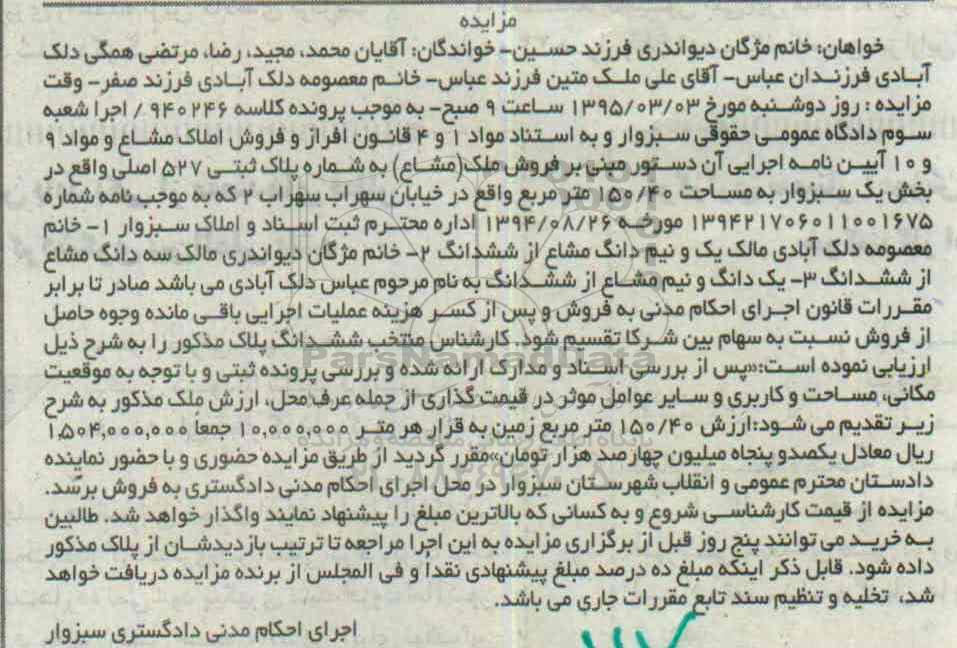 مزایده
خواهان: خانم مژگان دیواندری فرزند حسین- خواندگان: آقایان محمد، مجید، رضا، مرتضی همگی دلک
آبادی فرزندان عباس- آقای علی ملک متین فرزند عباس- خانم معصومه دلک آبادی فرزند صفر- وقت
مزایده : روز دوشنبه مورخ ۱۳۹۵/۰۳/۰۳ ساعت ۹ صبح- به موجب پرونده کلاسه ۹۴۰۲۴۶ / اجرا شعبه
سوم دادگاه عمومی حقوقی سبزوار و به استناد مواد ۱ و ۴ قانون افراز و فروش املاک مشاع و مواد ۹
و ۱۰ آیین نامه اجرایی آن دستور مبنی بر فروش ملک(مشاع) به شماره پلاک ثبتی ۵۲۷ اصلی واقع در
بخش یک سبزوار به مساحت ۱۵۰/۴۰ متر مربع واقع در خیابان سهراب سهراب ۲ که به موجب نامه شماره
۱۳۹۴۲۱۷۰۶۰۱۱۰۰۱۶۷۵ مورخه ۱۳۹۴/۰۸/۲۶ اداره محترم ثبت اسناد و املاک سبزوار ۱- خانم
معصومه دلک آبادی مالک یک و نیم دانگ مشاع از ششدانگ ۲- خانم مژگان دیواندری مالک سه دانگ مشاع
از ششدانگ ۳- یک دانگ و نیم مشاع از ششدانگ به نام مرحوم عباس دلک آبادی می باشد صادر تا برابر
مقررات قانون اجرای احکام مدنی به فروش و پس از کسر هزینه عملیات اجرایی باقی مانده وجوه حاصل
از فروش نسبت به سهام بین شرکا تقسیم شود. کارشناس منتخب ششدانگ پلاک مذکور را به شرح ذیل
ارزیابی نموده است:«پس از بررسی اسناد و مدارک ارائه شده و بررسی پرونده ثبتی و با توجه به موقعیت
مکانی، مساحت و کاربری و سایر عوامل موثر در قیمت گذاری از جمله عرف محل، ارزش ملک مذکور به شرح
زیر تقدیم می شود:ارزش ۱۵۰/۴۰ متر مربع زمین به قرار هر متر ۱۰,۰۰۰,۰۰۰ جمعاً ۱,۵۰۴,۰۰۰,۰۰۰
ریال معادل یکصدو پنجاه میلیون چهارصد هزار تومان»مقرر گردید از طریق مزایده حضوری و با حضور نماینده
دادستان محترم عمومی و انقلاب شهرستان سبزوار در محل اجرای احکام مدنی دادگستری به فروش برسد.
مزایده از قیمت کارشناسی شروع و به کسانی که بالاترین مبلغ را پیشنهاد نمایند واگذار خواهد شد. طالبین
به خرید می توانند پنج روز قبل از برگزاری مزایده به این اجرا مراجعه تا ترتیب بازدیدشان از پلاک مذکور
داده شود. قابل ذکر اینکه مبلغ ده درصد مبلغ پیشنهادی نقداً و فی المجلس از برنده مزایده دریافت خواهد
شد، تخلیه و تنظیم سند تابع مقررات جاری می باشد.
اجرای احکام مدنی دادگستری سبزوار
ParsNamadData